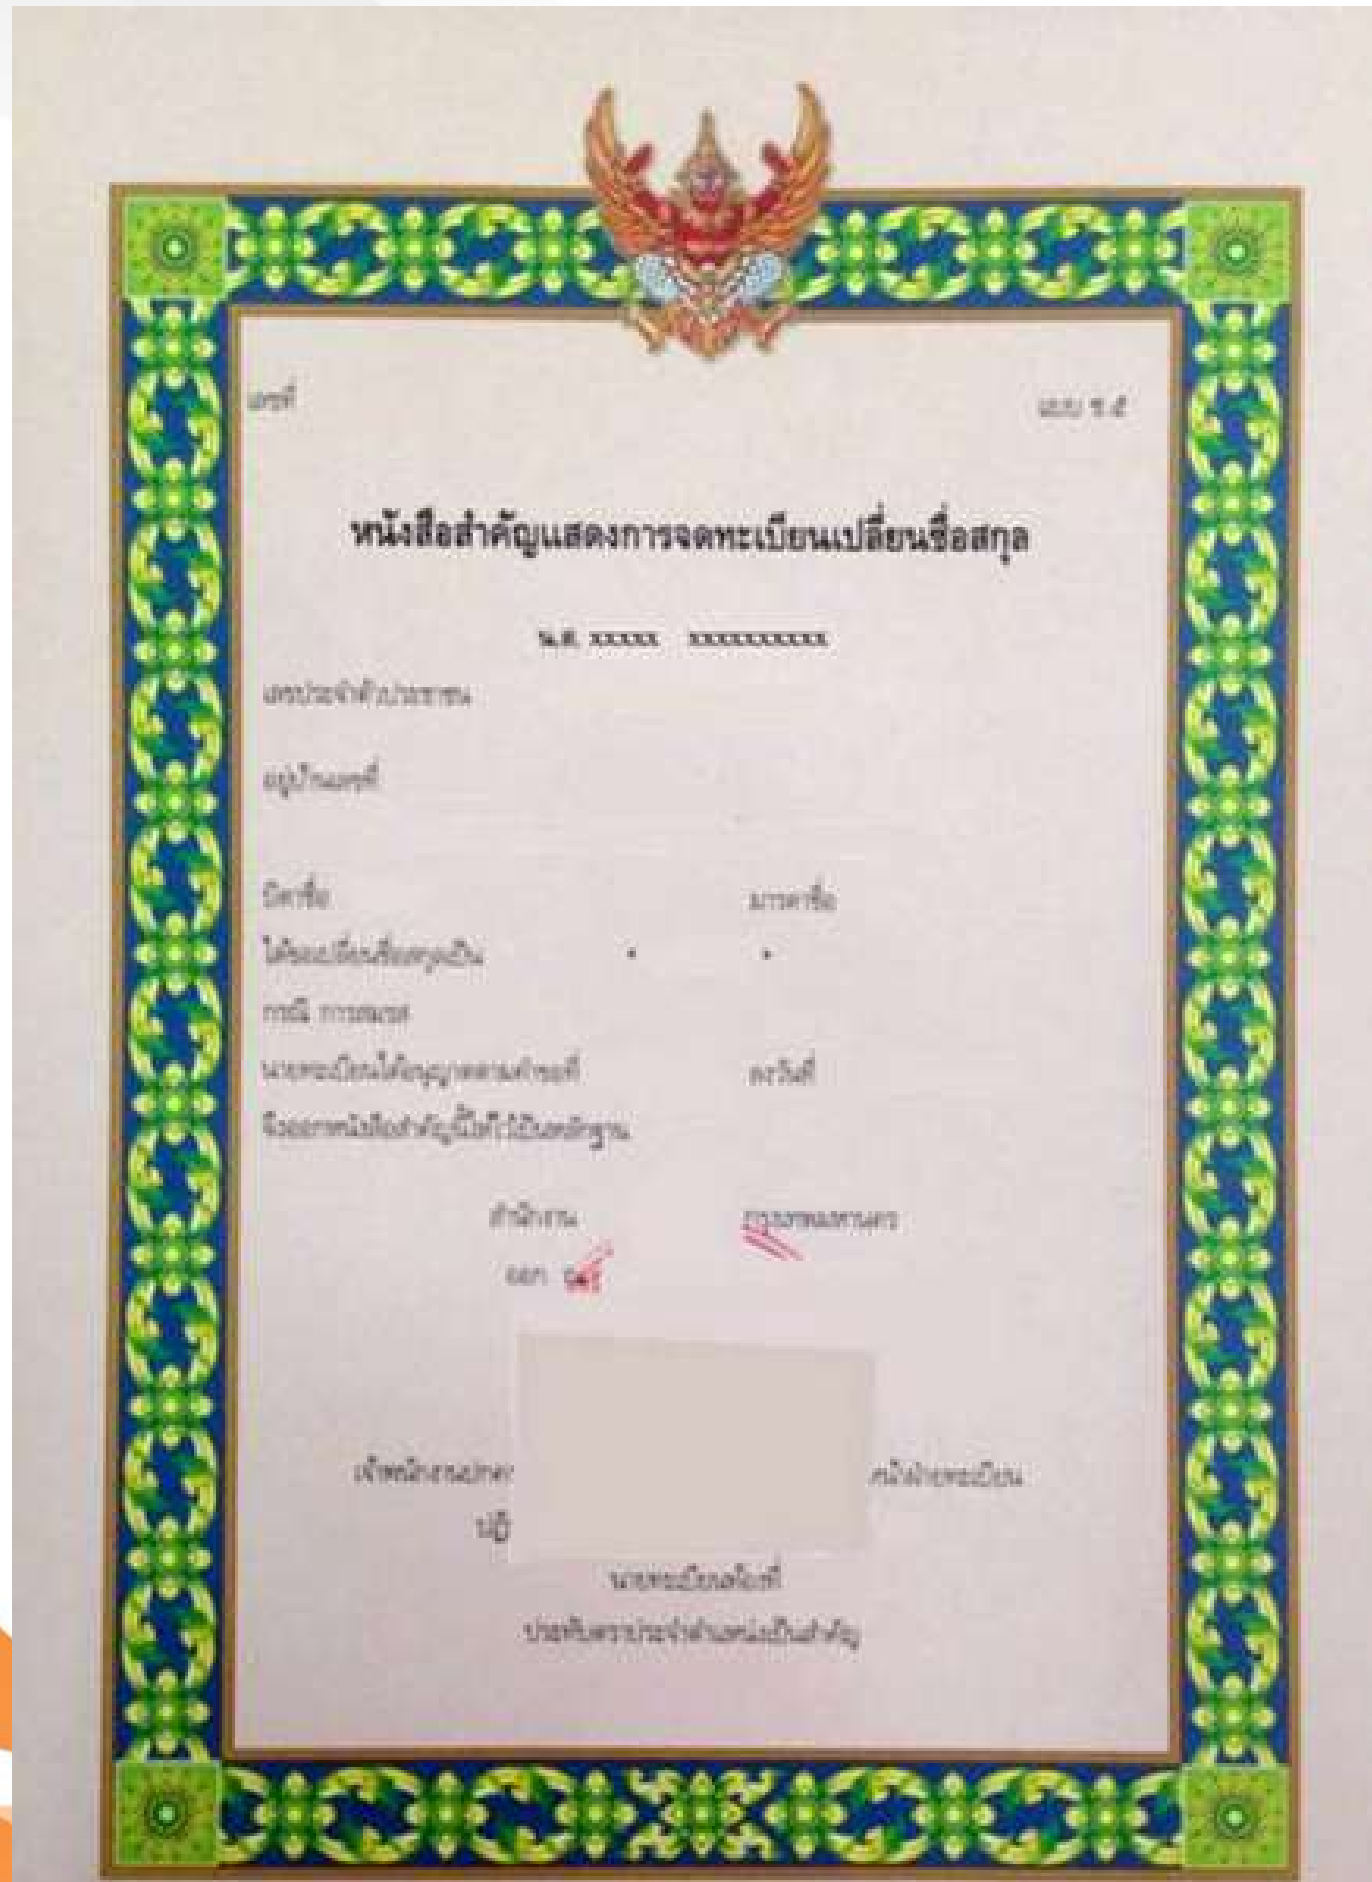 เลขที่ แบบ ช.๕
หนังสือสำคัญแสดงการจดทะเบียนเปลี่ยนชื่อสกุล
น.ส. xxxxx xxxxxxxxxx
เลขประจำตัวประชาชน
อยู่บ้านเลขที่
บิดาชื่อ มารดาชื่อ
ได้ขอเปลี่ยนชื่อสกุลเป็น " "
กรณี การสมรส
นายทะเบียนได้อนุญาตตามคำขอที่ ลงวันที่
จึงออกหนังสือสำคัญนี้ให้ไว้เป็นหลักฐาน
สำนักงาน กรุงเทพมหานคร
ออก ณ
เจ้าพนักงานปกค หน้าฝ่ายทะเบียน
ปฏิ
นายทะเบียนท้องที่
ประทับตราประจำตำแหน่งเป็นสำคัญ